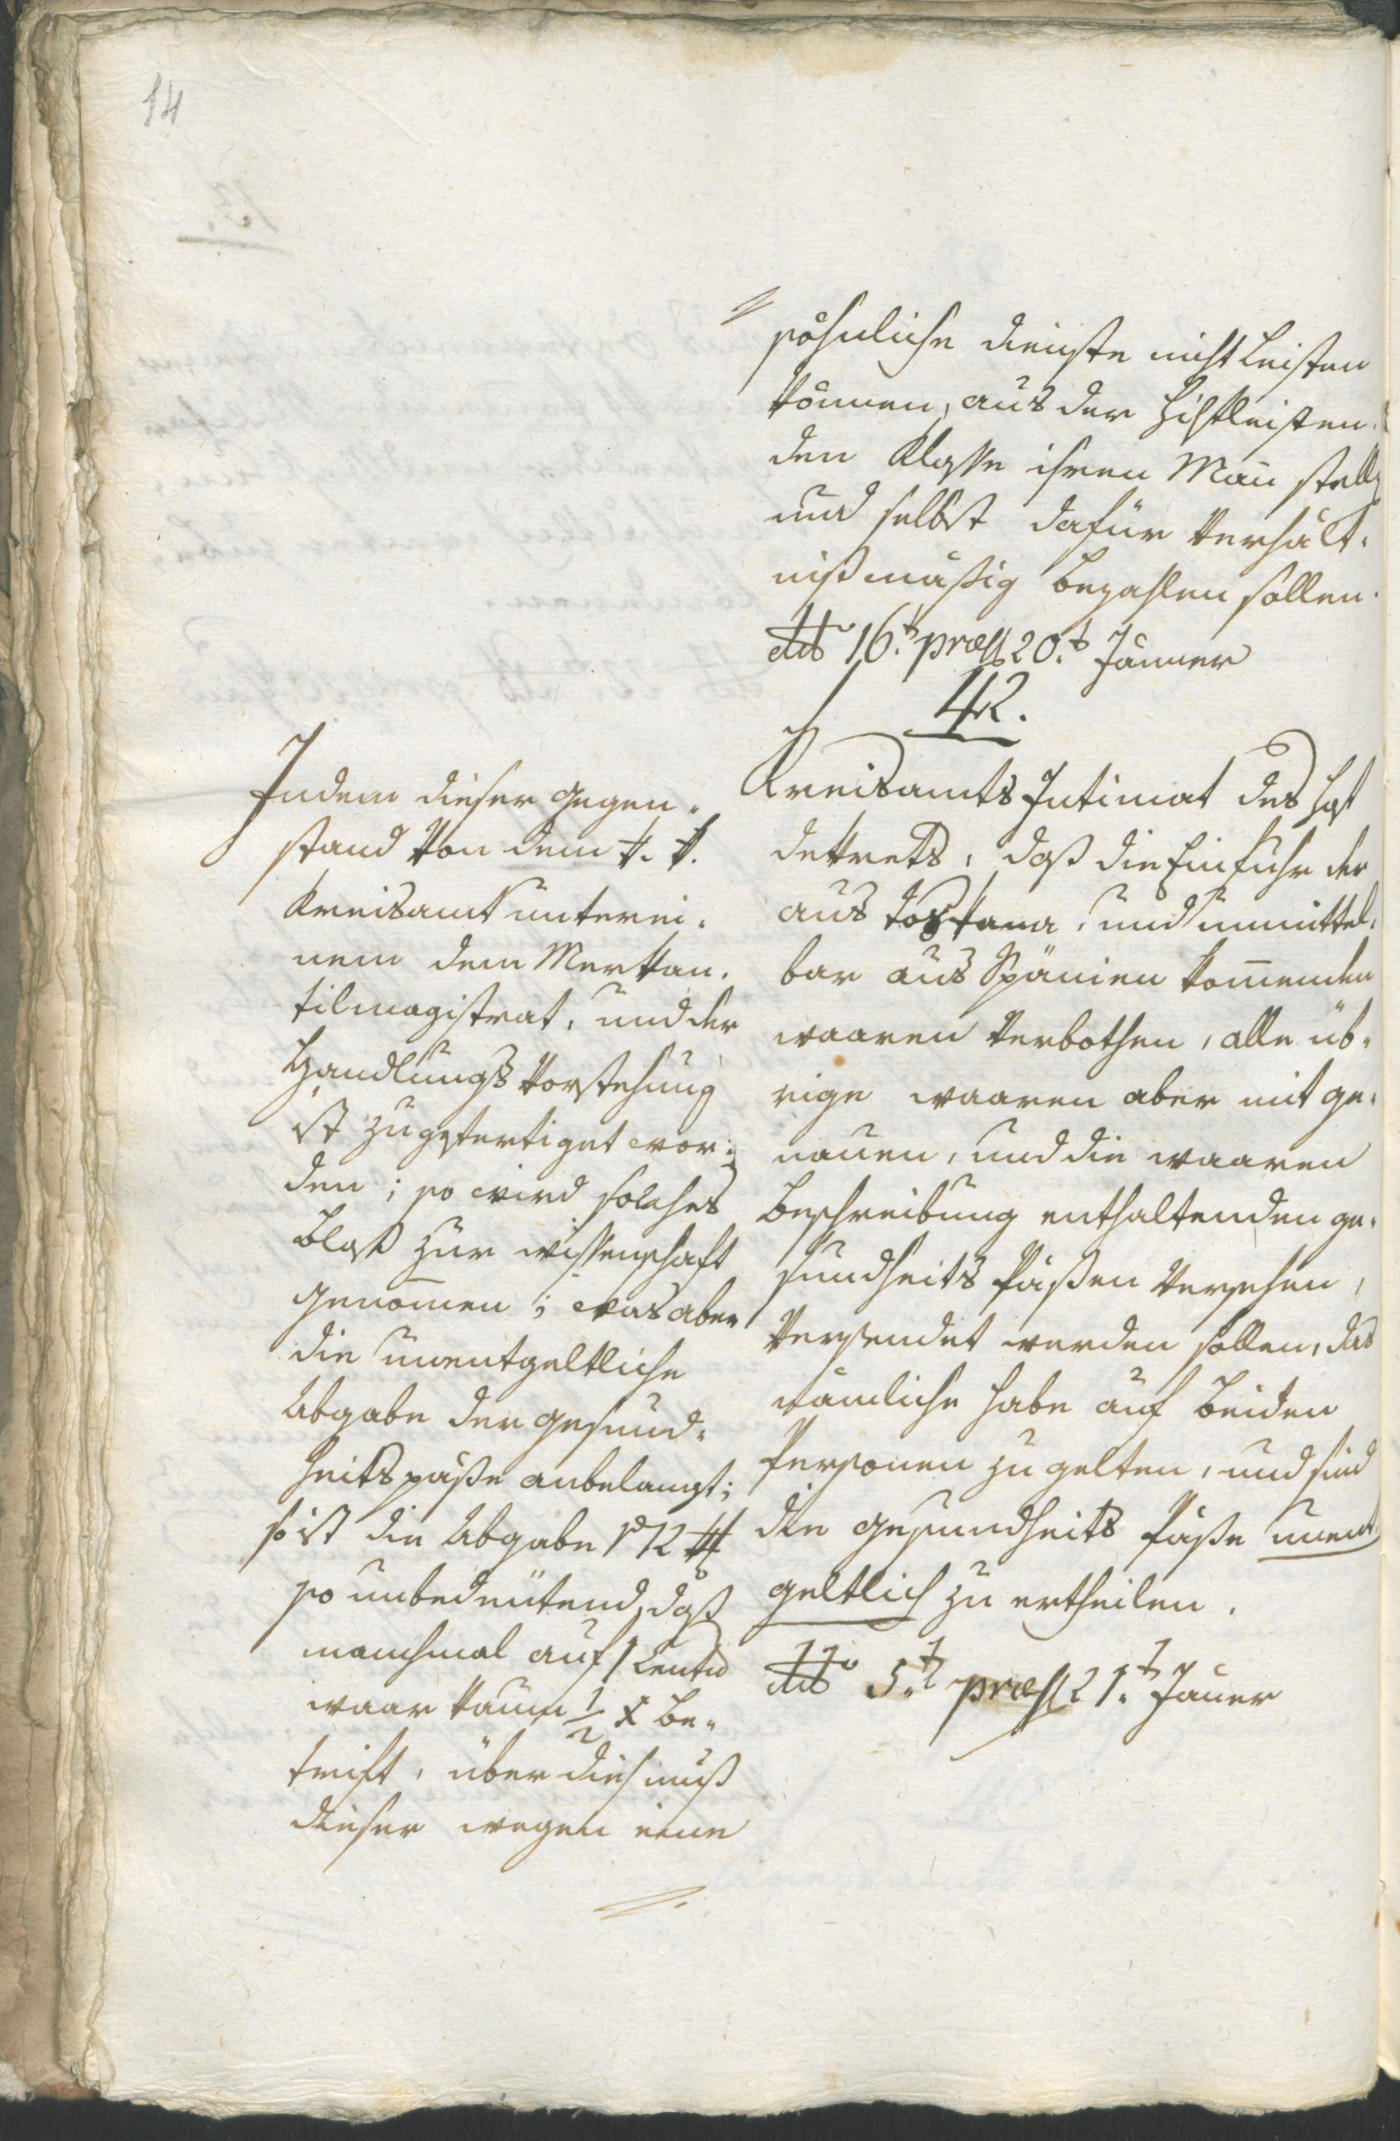 14
söhnliche dienste nicht Leisten
können, aus der Hilfleisten-
den Klasse ihren Man̄ stellen
und selbst dafür Verhält-
nißmäßig bezahlen sollen.
ddto 16.t præs 20.t Jänner
42.
Kreisamts Intimat des Hof
dekrets, daß die Einfuhr der
aus Toskana, und unmittel-
bar aus Spänien kom̄enden
waaren Verbothen, alle üb-
rige waaren aber mit ge-
nauen, und die waaren
Beschreibung enthaltenden ge-
sundheits Päßen Versehen,
Versendet werden sollen, das
nämliche habe auf Beiden
Personen zu gelten, und sind
die gesundheits Päße unent
geltlich zu ertheilen.
ddto 5.t præs 21.t Jäner
Indem dieser Gegen-
stand Von dem k. k.
Kreisamt unterei-
nem dem Merkan-
tilmagistrat, und der
Handlungs Vorstehung
ist zugefertiget wor-
den; so wird solches
Bloß zur wissenschaft
genom̄en; was aber
die unentgeltliche
Abgabe der gesund-
heitspäße anbelangt;
so ist die Abgabe 12
so unbedeutend, daß
manchmal auf 1 Centn
waar kaum 1/2 x Be-
trift, über dies muß
dieser wegen eine